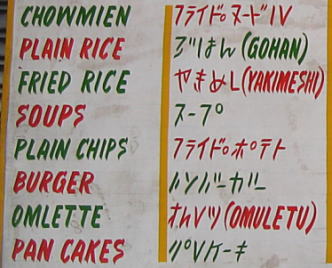 CHOWMIEN フライド。ヌードlV
PLAIN RICE ごはん (GOHAN)
FRIED RICE やきめし(YAKIMESHI)
SOUPS スープ
PLAIN CHIPS フライド。ポテト
BURGER ハンバーガー
OMLETTE オムレツ (OMULETU)
PAN CAKES パンケーキ